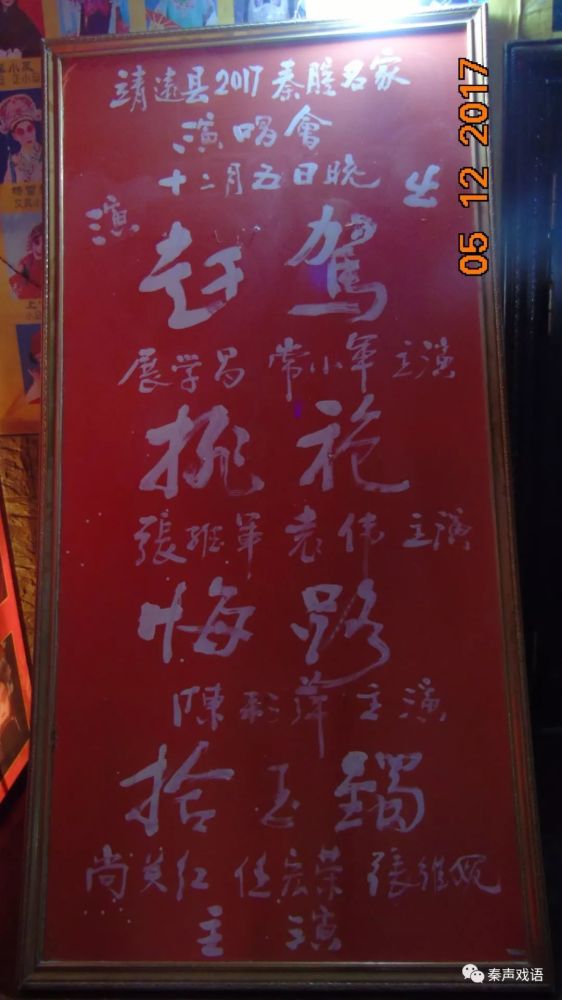 靖遠县2017秦腔名家
演唱會
十二月五日晚 出
演
赶駕
展学昌 常小軍 主演
挑袍
張维軍 袁伟 主演
悔路
陳彩萍 主演
拾玉鐲
尚英红 任宏荣 張维妮
主演
05 12 2017
秦声戏语